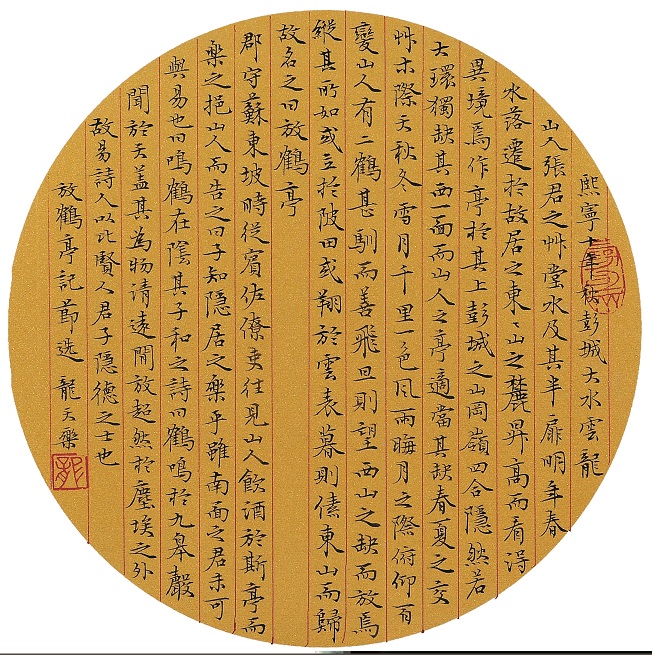 熙寧十年秋彭城大水雲龍
山人張君之艸堂水及其半扉明年春
水落遷於故居之東〻山之麓昇高而看得
異境焉作亭於其上彭城之山岡嶺四合隱然若
大環獨缺其西一面而山人之亭適當其缺春夏之交
艸木際天秋冬雪月千里一色风雨晦月之際俯仰百
變山人有二鶴甚馴而善飛旦則望西山之缺而放焉
縱其所如或立於陂田或翔於雲表暮則傃東山而歸
故名之曰放鶴亭
郡守蘇東坡時從賓佐僚吏往見山人飲酒於斯亭而
樂之挹山人而告之曰子知隱居之樂乎雖南面之君未可
與易也曰鳴鶴在陰其子和之詩曰鶴鳴於九皋聲
聞於天蓋其為物清遠閒放超然於塵埃之外
故易詩人以比賢人君子隱德之士也
放鶴亭記節選 龍天樂